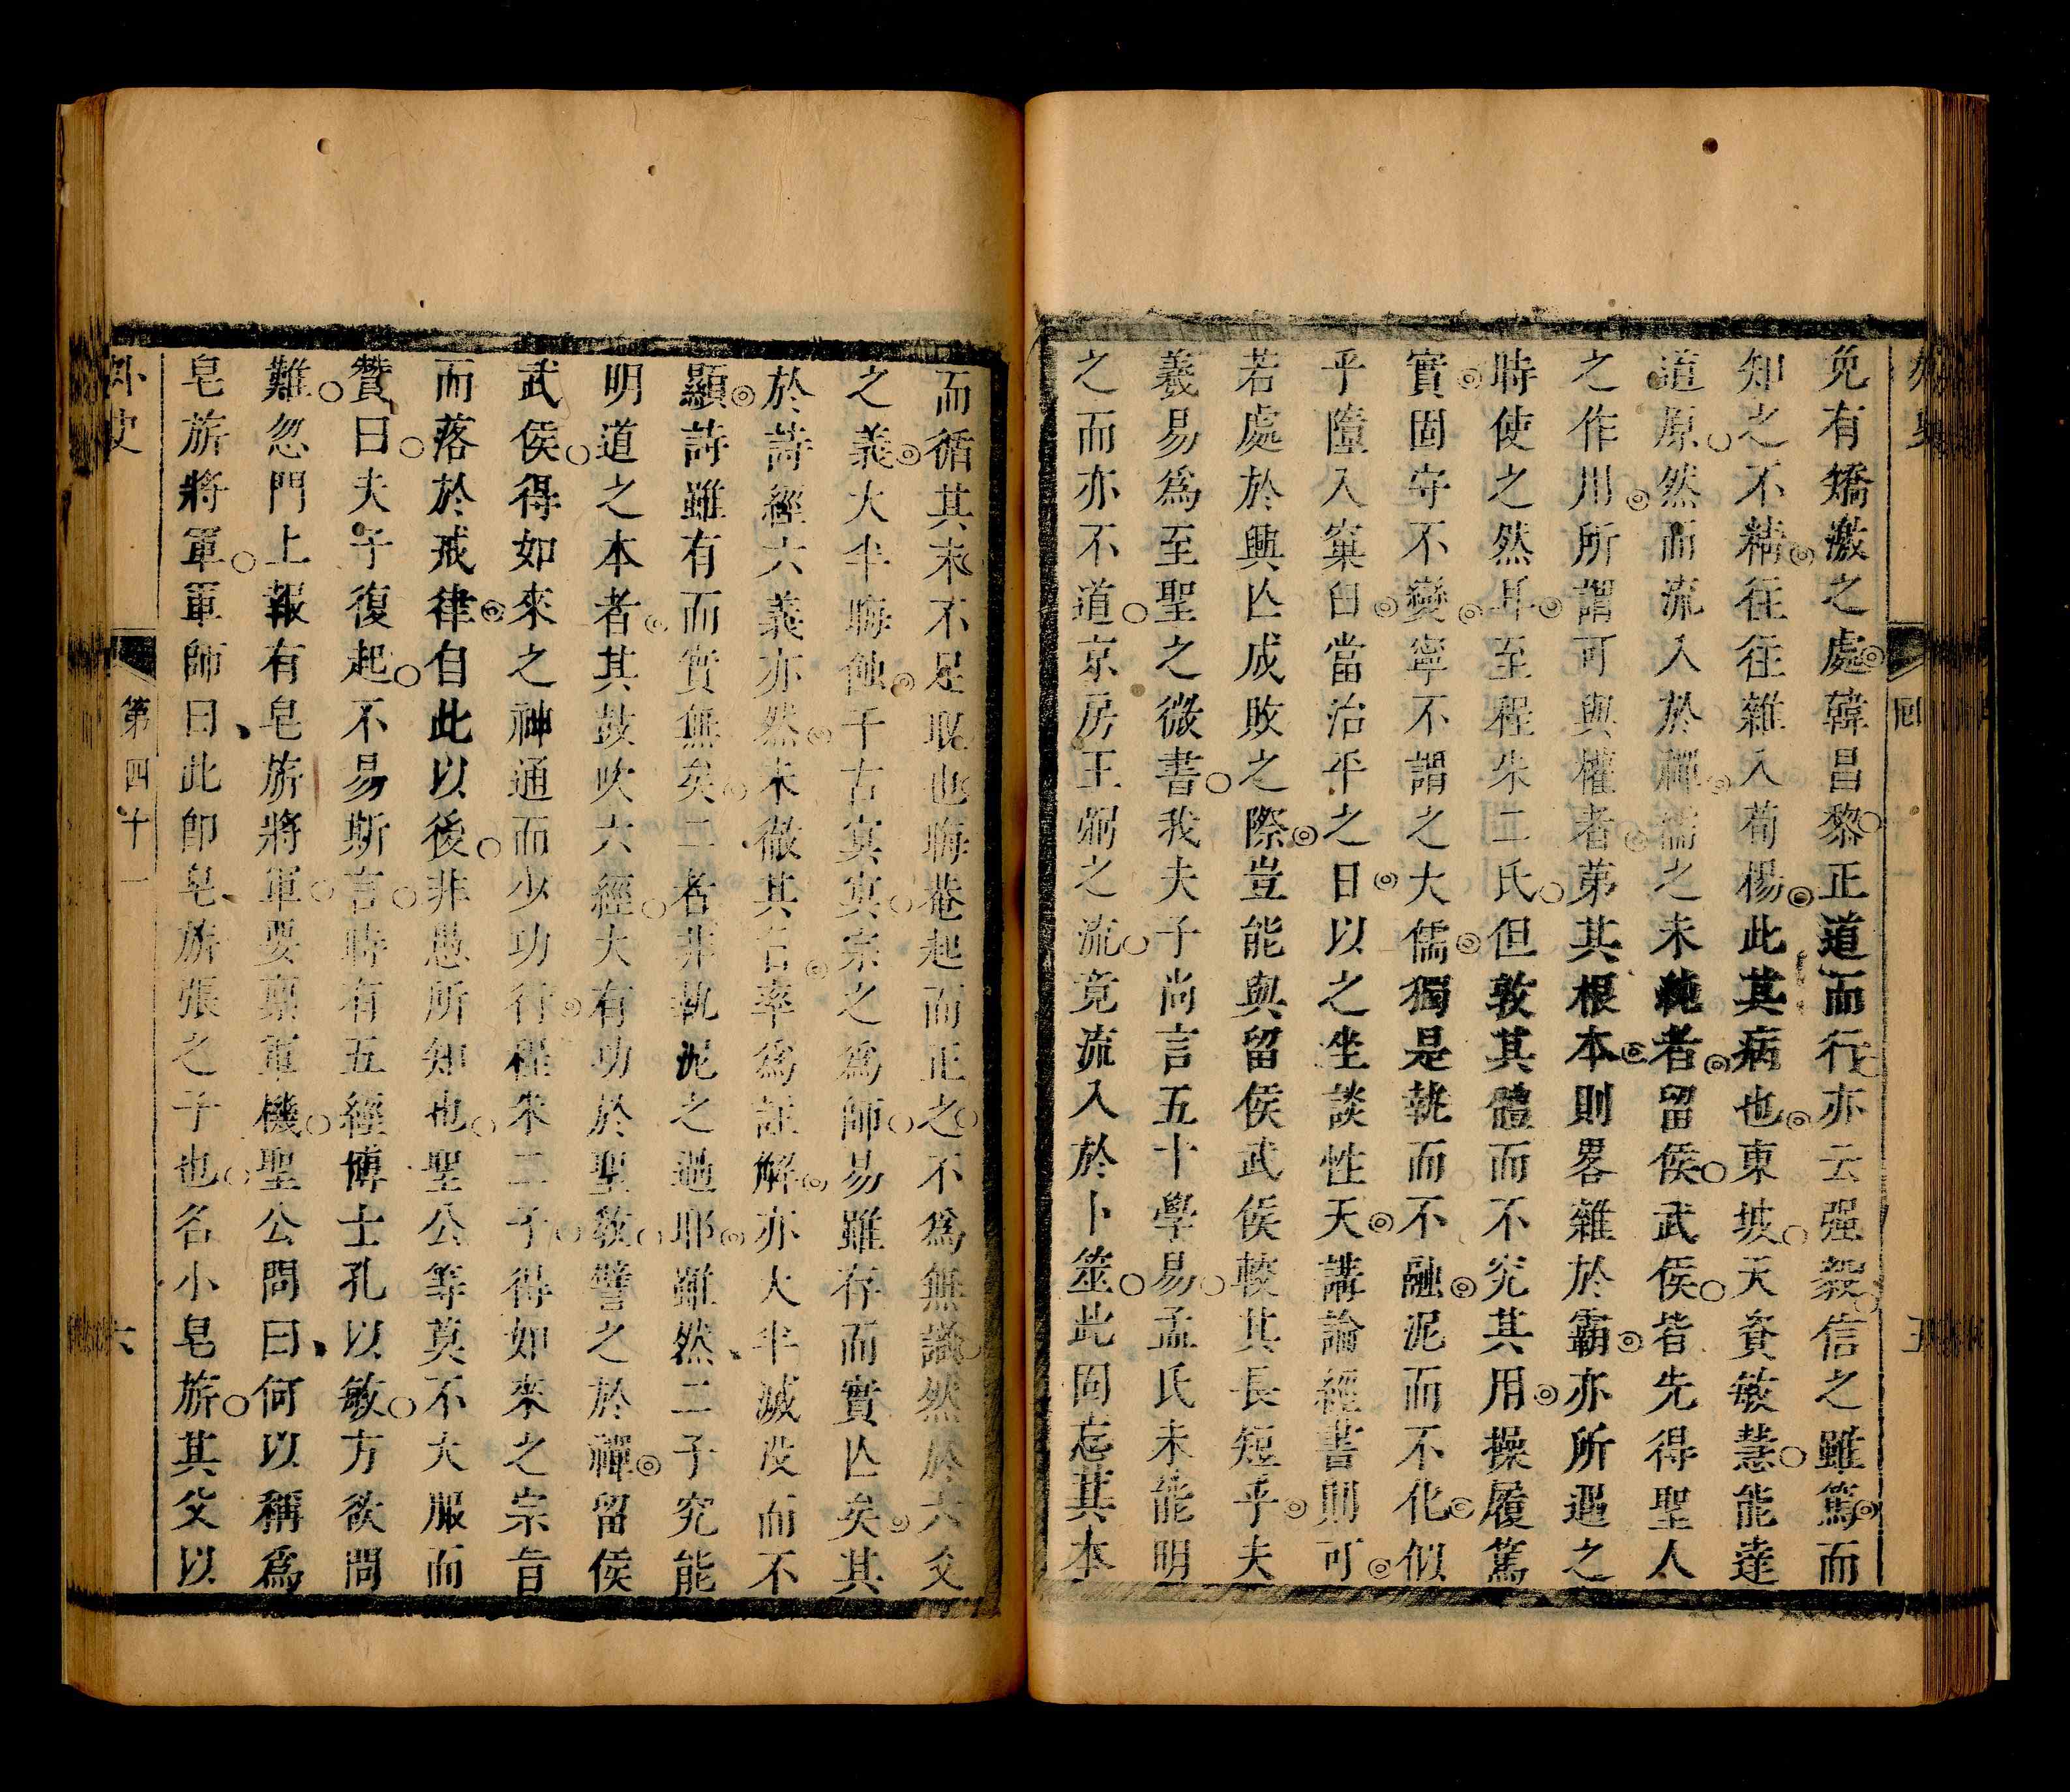 免有矯激之處韓昌黎正道而行亦云强毅信之雖篤而
知之不精往往雜入荀楊此其病也東坡天資敏慧能達
道原然而流入於禪儒之未純者留侯武侯皆先得聖人
之作用所謂可與權者第其根本則畧雜於霸亦所遇之
時使之然耳至程朱二氏但敦其體而不究其用操履篤
實固守不變寧不謂之大儒獨是執而不融泥而不化似
乎隨入窠臼當治平之日以之坐談性天講論經書則可
若處於興亾成敗之際豈能與留侯武侯較其長短乎夫
羲易爲至聖之微書我夫子尚言五十學易孟氏未能明
之而亦不道京房王弼之流竟流入於卜筮此固忘其本
而循其末不足取也晦菴起而正之不爲無識然於六爻
之義大半晦蝕千古冥冥宗之爲師易雖存而實亾矣其
於詩經六義亦然未徹其旨率爲註解亦大半滅没而不
顯詩雖有而實無矣二者非執泥之過耶雖然二子究能
明道之本者其鼓吹六經大有功於聖教譬之於禪留侯
武侯得如來之神通而少功行程朱二子得如來之宗旨
而落於戒律自此以後非愚所知也聖公等莫不大服而
贊曰夫子復起不易斯言時有五經博士孔以敏方欲問
難忽門上報有皂旂將軍要禀軍機聖公問曰何以稱爲
皂旂將軍軍師曰此卽皂旂張之子也名小皂旂其父以
外史
第四十一
六